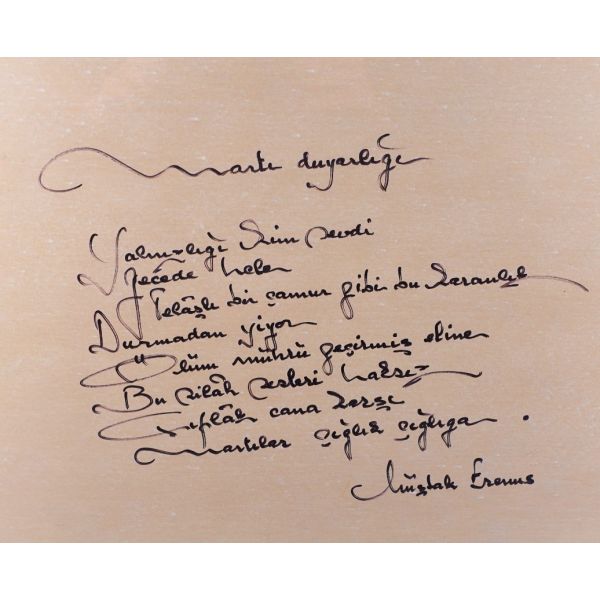 Martı duyarlığı
Yalnızlığı kim sevdi
Gecede hele
Telâşlı bir çamur gibi bu karanlık
Durmadan yiyor
Ölüm mührü geçirmiş eline
Bu silâh sesleri haksız
Çıplak cana karşı
Martılar çığlık çığlığa .
Müştak Erenus